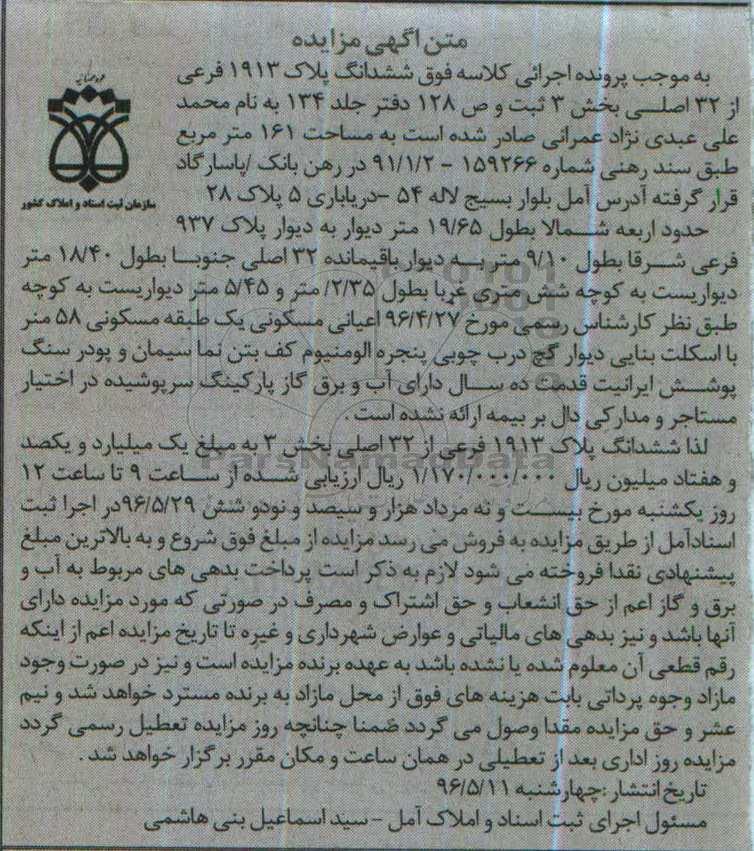 متن آگهی مزایده
به موجب پرونده اجرائی کلاسه فوق ششدانگ پلاک ۱۹۱۳ فرعی
از ۳۲ اصلی بخش ۳ ثبت و ص ۱۲۸ دفتر جلد ۱۳۴ به نام محمد
علی عبدی نژاد عمرانی صادر شده است به مساحت ۱۶۱ متر مربع
طبق سند رهنی شماره ۱۵۹۲۶۶ - ۹۱/۱/۲ در رهن بانک /پاسارگاد
قرار گرفته آدرس آمل بلوار بسیج لاله ۵۴ -دریاباری ۵ پلاک ۲۸
سازمان ثبت اسناد و املاک کشور
حدود اربعه شمالا بطول ۱۹/۶۵ متر دیوار به دیوار پلاک ۹۳۷
فرعی شرقا بطول ۹/۱۰ متر به دیوار باقیمانده ۳۲ اصلی جنوبا بطول ۱۸/۴۰ متر
دیواریست به کوچه شش متری غربا بطول ۲/۳۵/ متر و ۵/۴۵ متر دیواریست به کوچه
طبق نظر کارشناس رسمی مورخ ۹۶/۴/۲۷ اعیانی مسکونی یک طبقه مسکونی ۵۸ منر
با اسکلت بنایی دیوار گچ درب چوبی پنجره الومنیوم کف بتن نما سیمان و پودر سنگ
پوشش ایرانیت قدمت ده سال دارای آب و برق گاز پارکینگ سرپوشیده در اختیار
مستاجر و مدارکی دال بر بیمه ارائه نشده است .
لذا ششدانگ پلاک ۱۹۱۳ فرعی از ۳۲ اصلی بخش ۳ به مبلغ یک میلیارد و یکصد
و هفتاد میلیون ریال ۱/۱۷۰/۰۰۰/۰۰۰ ریال ارزیابی شده از ساعت ۹ تا ساعت ۱۲
روز یکشنبه مورخ بیست و نه مرداد هزار و سیصد و نودو شش ۹۶/۵/۲۹در اجرا ثبت
اسنادآمل از طریق مزایده به فروش می رسد مزایده از مبلغ فوق شروع و به بالاترین مبلغ
پیشنهادی نقدا فروخته می شود لازم به ذکر است پرداخت بدهی های مربوط به آب و
برق و گاز اعم از حق انشعاب و حق اشتراک و مصرف در صورتی که مورد مزایده دارای
آنها باشد و نیز بدهی های مالیاتی و عوارض شهرداری و غیره تا تاریخ مزایده اعم از اینکه
رقم قطعی آن معلوم شده یا نشده باشد به عهده برنده مزایده است و نیز در صورت وجود
مازاد وجوه پرداتی بابت هزینه های فوق از محل مازاد به برنده مسترد خواهد شد و نیم
عشر و حق مزایده مقدا وصول می گردد ضمنا چنانچه روز مزایده تعطیل رسمی گردد
مزایده روز اداری بعد از تعطیلی در همان ساعت و مکان مقرر برگزار خواهد شد .
تاریخ انتشار :چهارشنبه ۹۶/۵/۱۱
مسئول اجرای ثبت اسناد و املاک آمل - سید اسماعیل بنی هاشمی
ParsNamadData